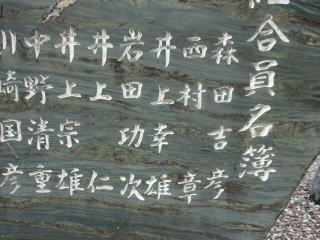 組合員名簿
森田吉彦
西村章
井上幸雄
岩田功次
井上仁
井上宗雄
中野清重
川崎国彦